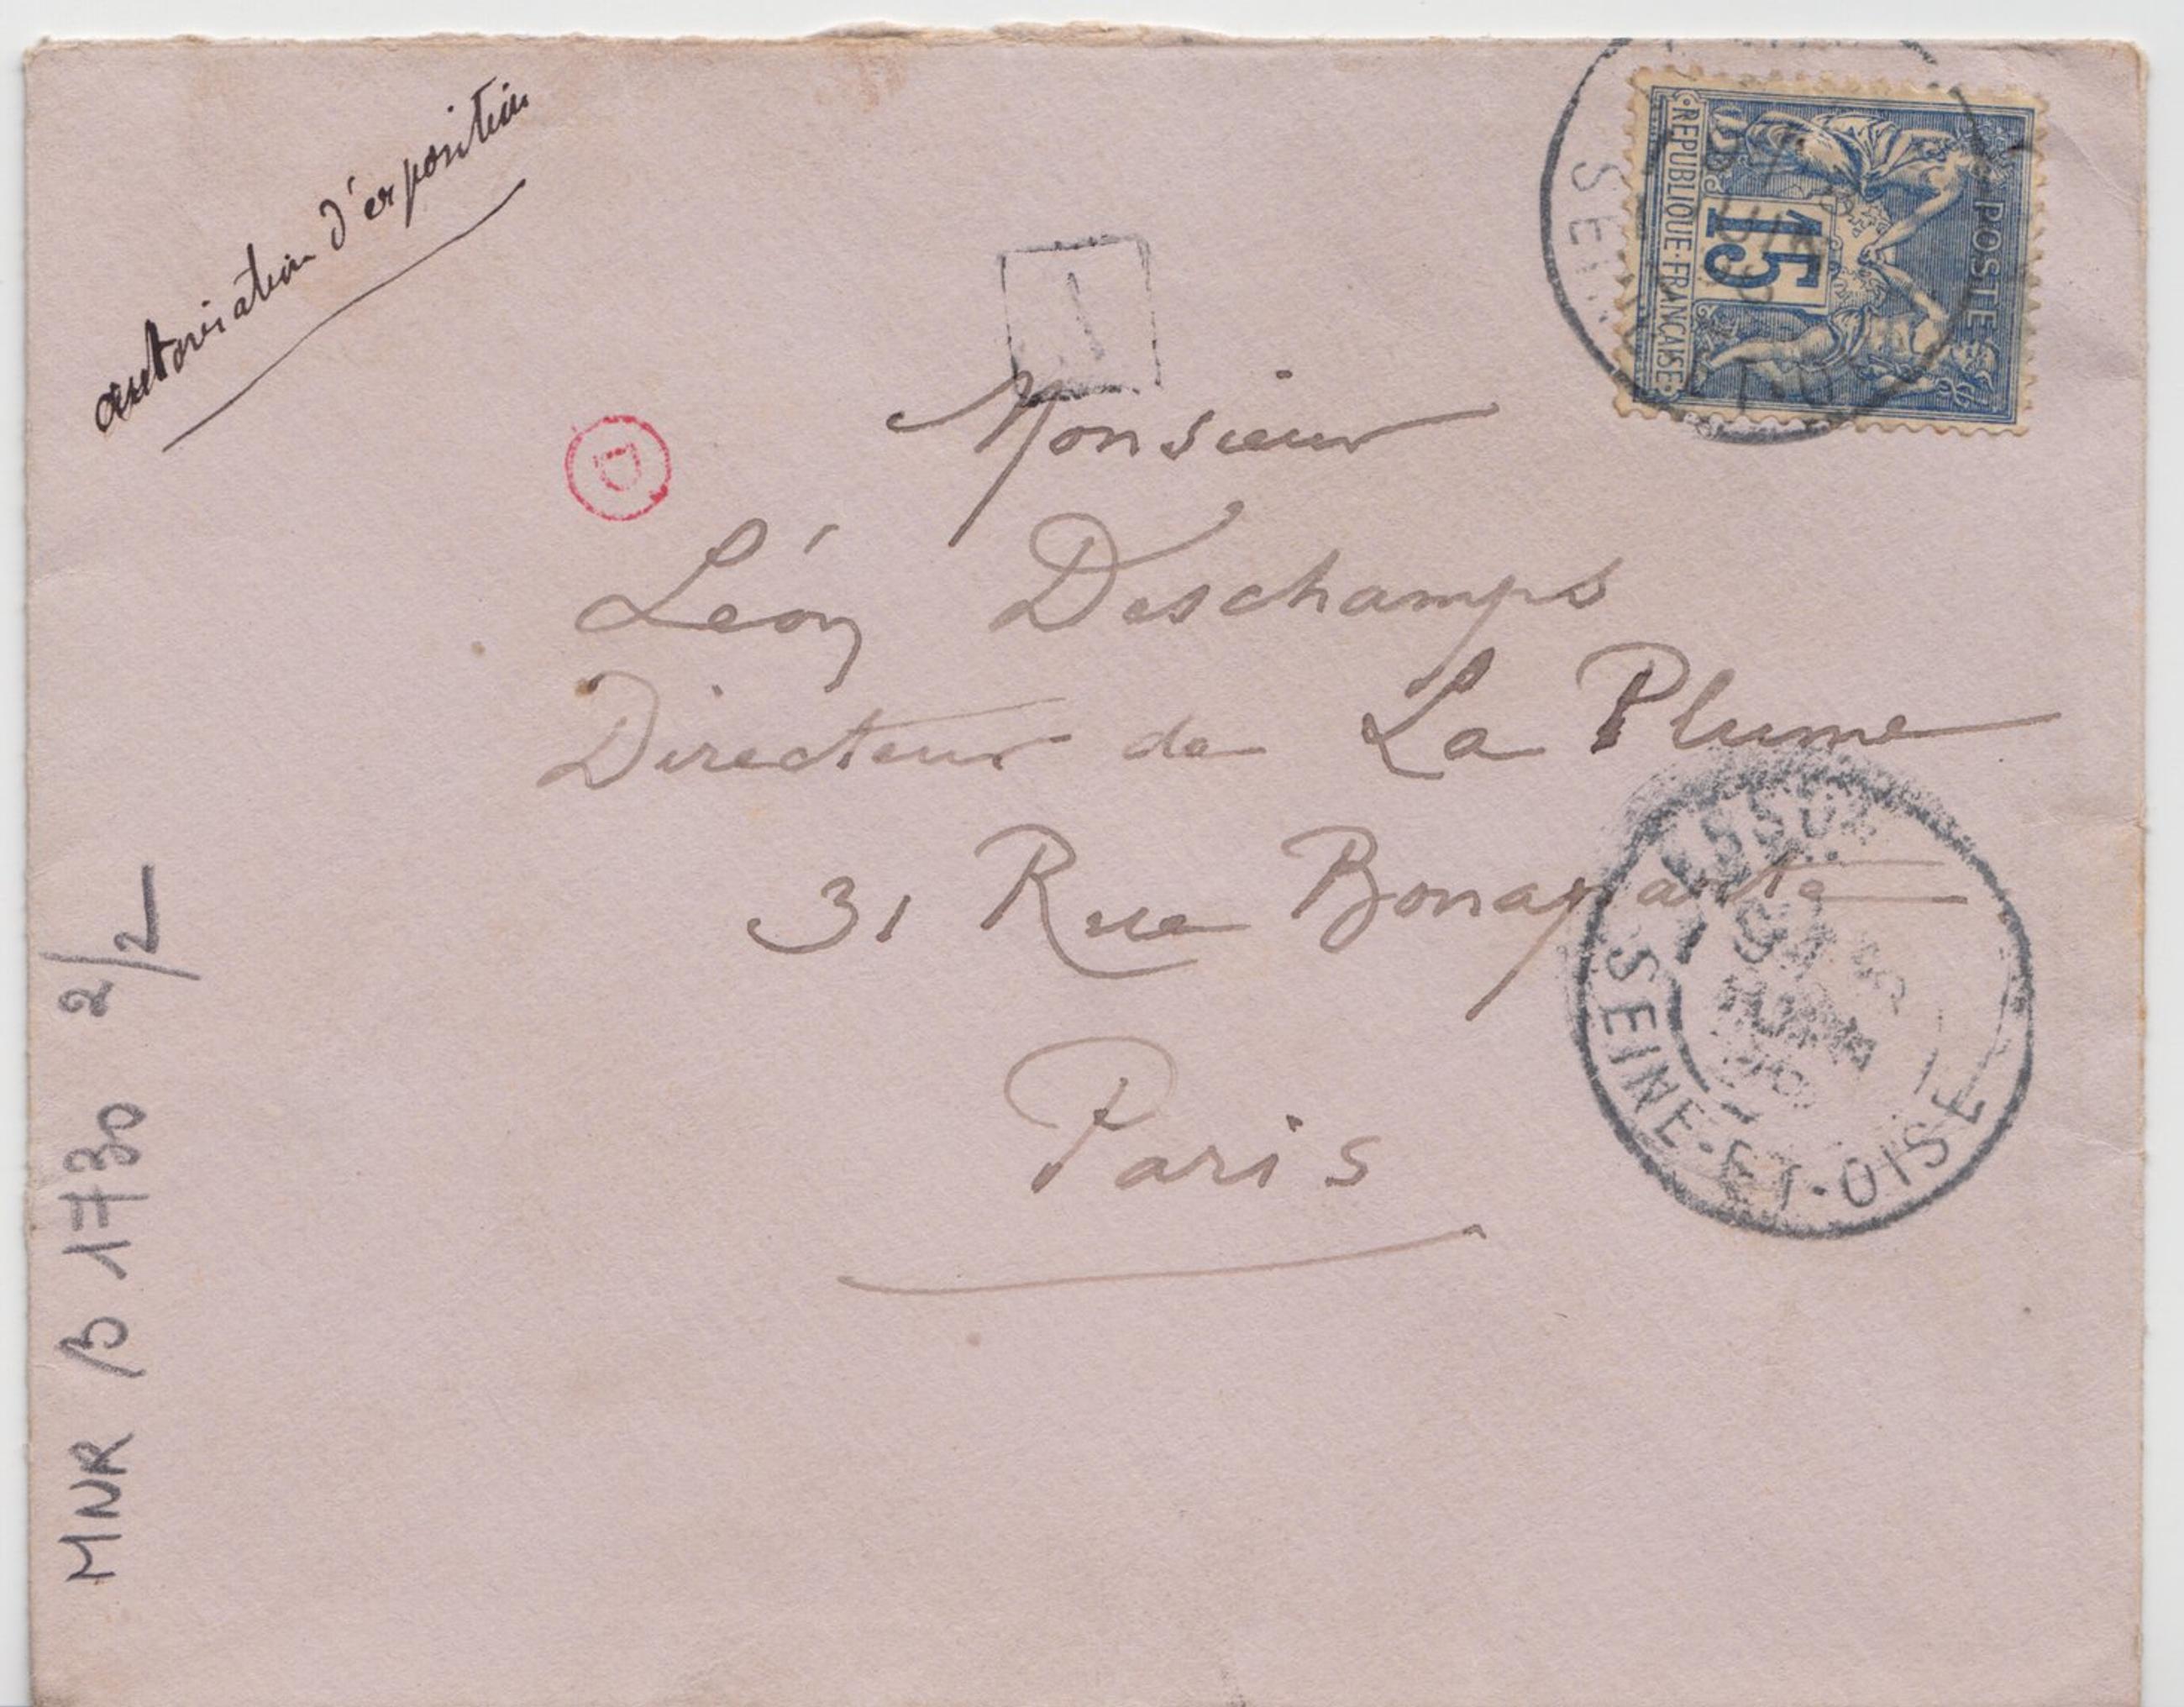 autorisation d'exposition
POSTE
15
REPUBLIQUE FRANÇAISE
D
Monsieur
Léon Deschamps
Directeur de La Plume
31 Rue Bonaparte
Paris
SEINE-ET-OISE
MNR B 1730 2/2